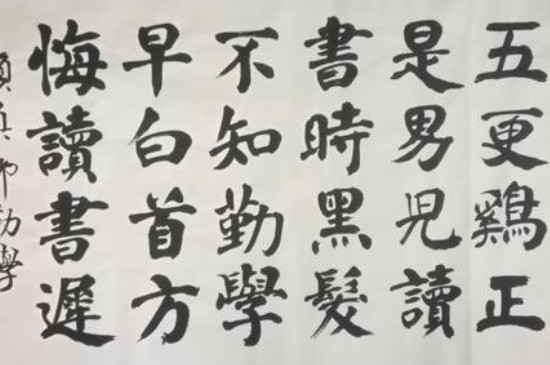 五更鷄正
是男児讀
書時黑髮
不知勤學
早白首方
悔讀書遲
顔真卿勸學